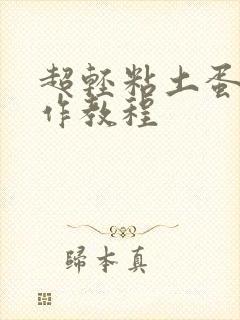 超轻粘土蛋
作教程
歸本真